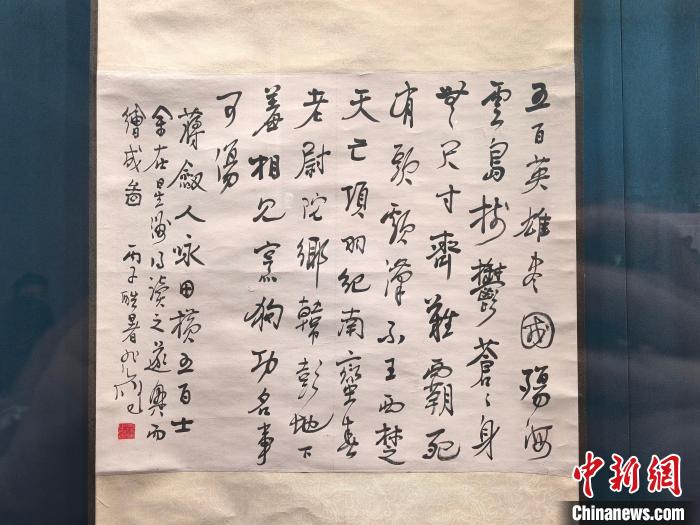 五百英雄尽國殤海
雲島樹鬱蒼〻身
無尺寸齊難霸死
有頭顱漢不王西楚
天亡項羽紀南蠻春
老尉陀鄉韓彭地下
羞相見烹狗功名事
可傷
人詠田橫五百士
余在星洲得讀之遂興而
繪成圖 丙子酷暑
中新网
Chinanews.com